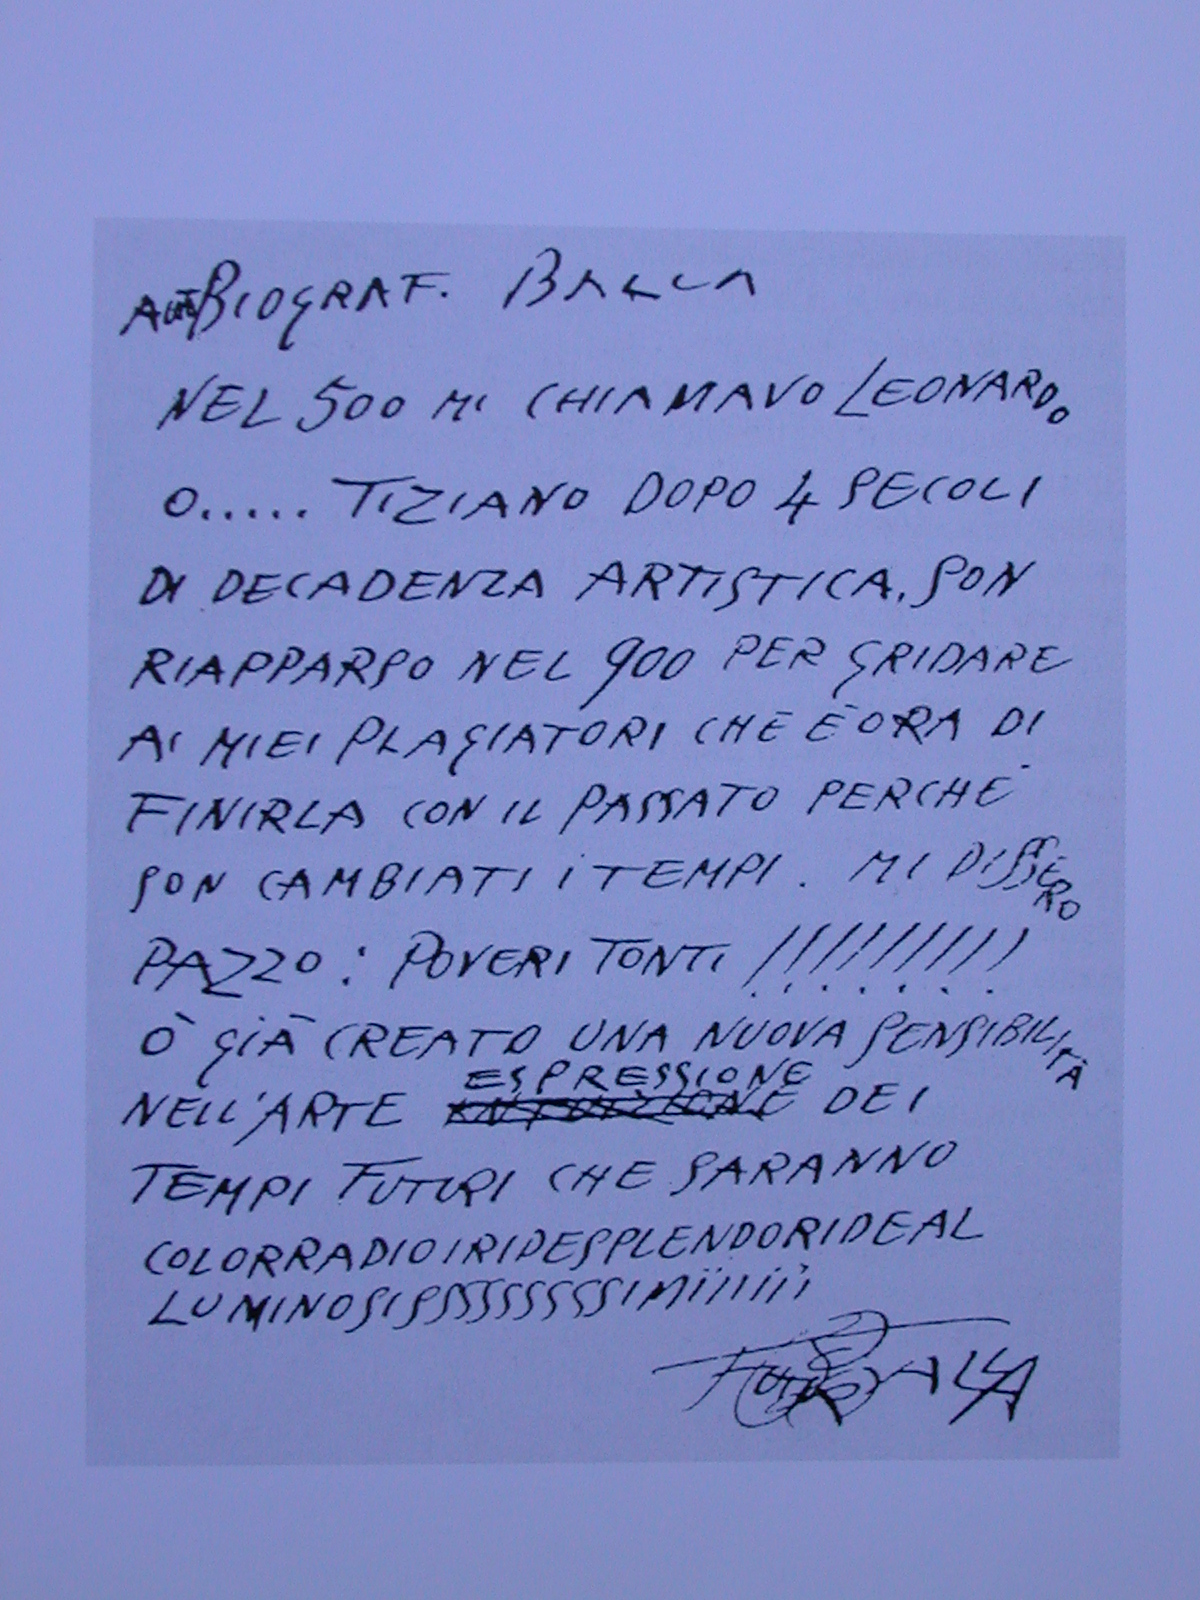 AUTOBIOGRAF. BALLA
NEL 500 MI CHIAMAVO LEONARDO
O..... TIZIANO DOPO 4 SECOLI
DI DECADENZA ARTISTICA, SON
RIAPPARSO NEL 900 PER GRIDARE
AI MIEI PLAGIATORI CHE È ORA DI
FINIRLA CON IL PASSATO PERCHÈ
SON CAMBIATI I TEMPI. MI DISSERO
PAZZO: POVERI TONTI !!!!!!!!!
Ò GIÀ CREATO UNA NUOVA SENSIBILITÀ
NELL'ARTE ESPRESSIONE DEI
TEMPI FUTURI CHE SARANNO
COLORRADIOIRIDESPLENDORIDEAL
LUMINOSISSSSSSSSSIMIIIIII
FUTUR BALLA